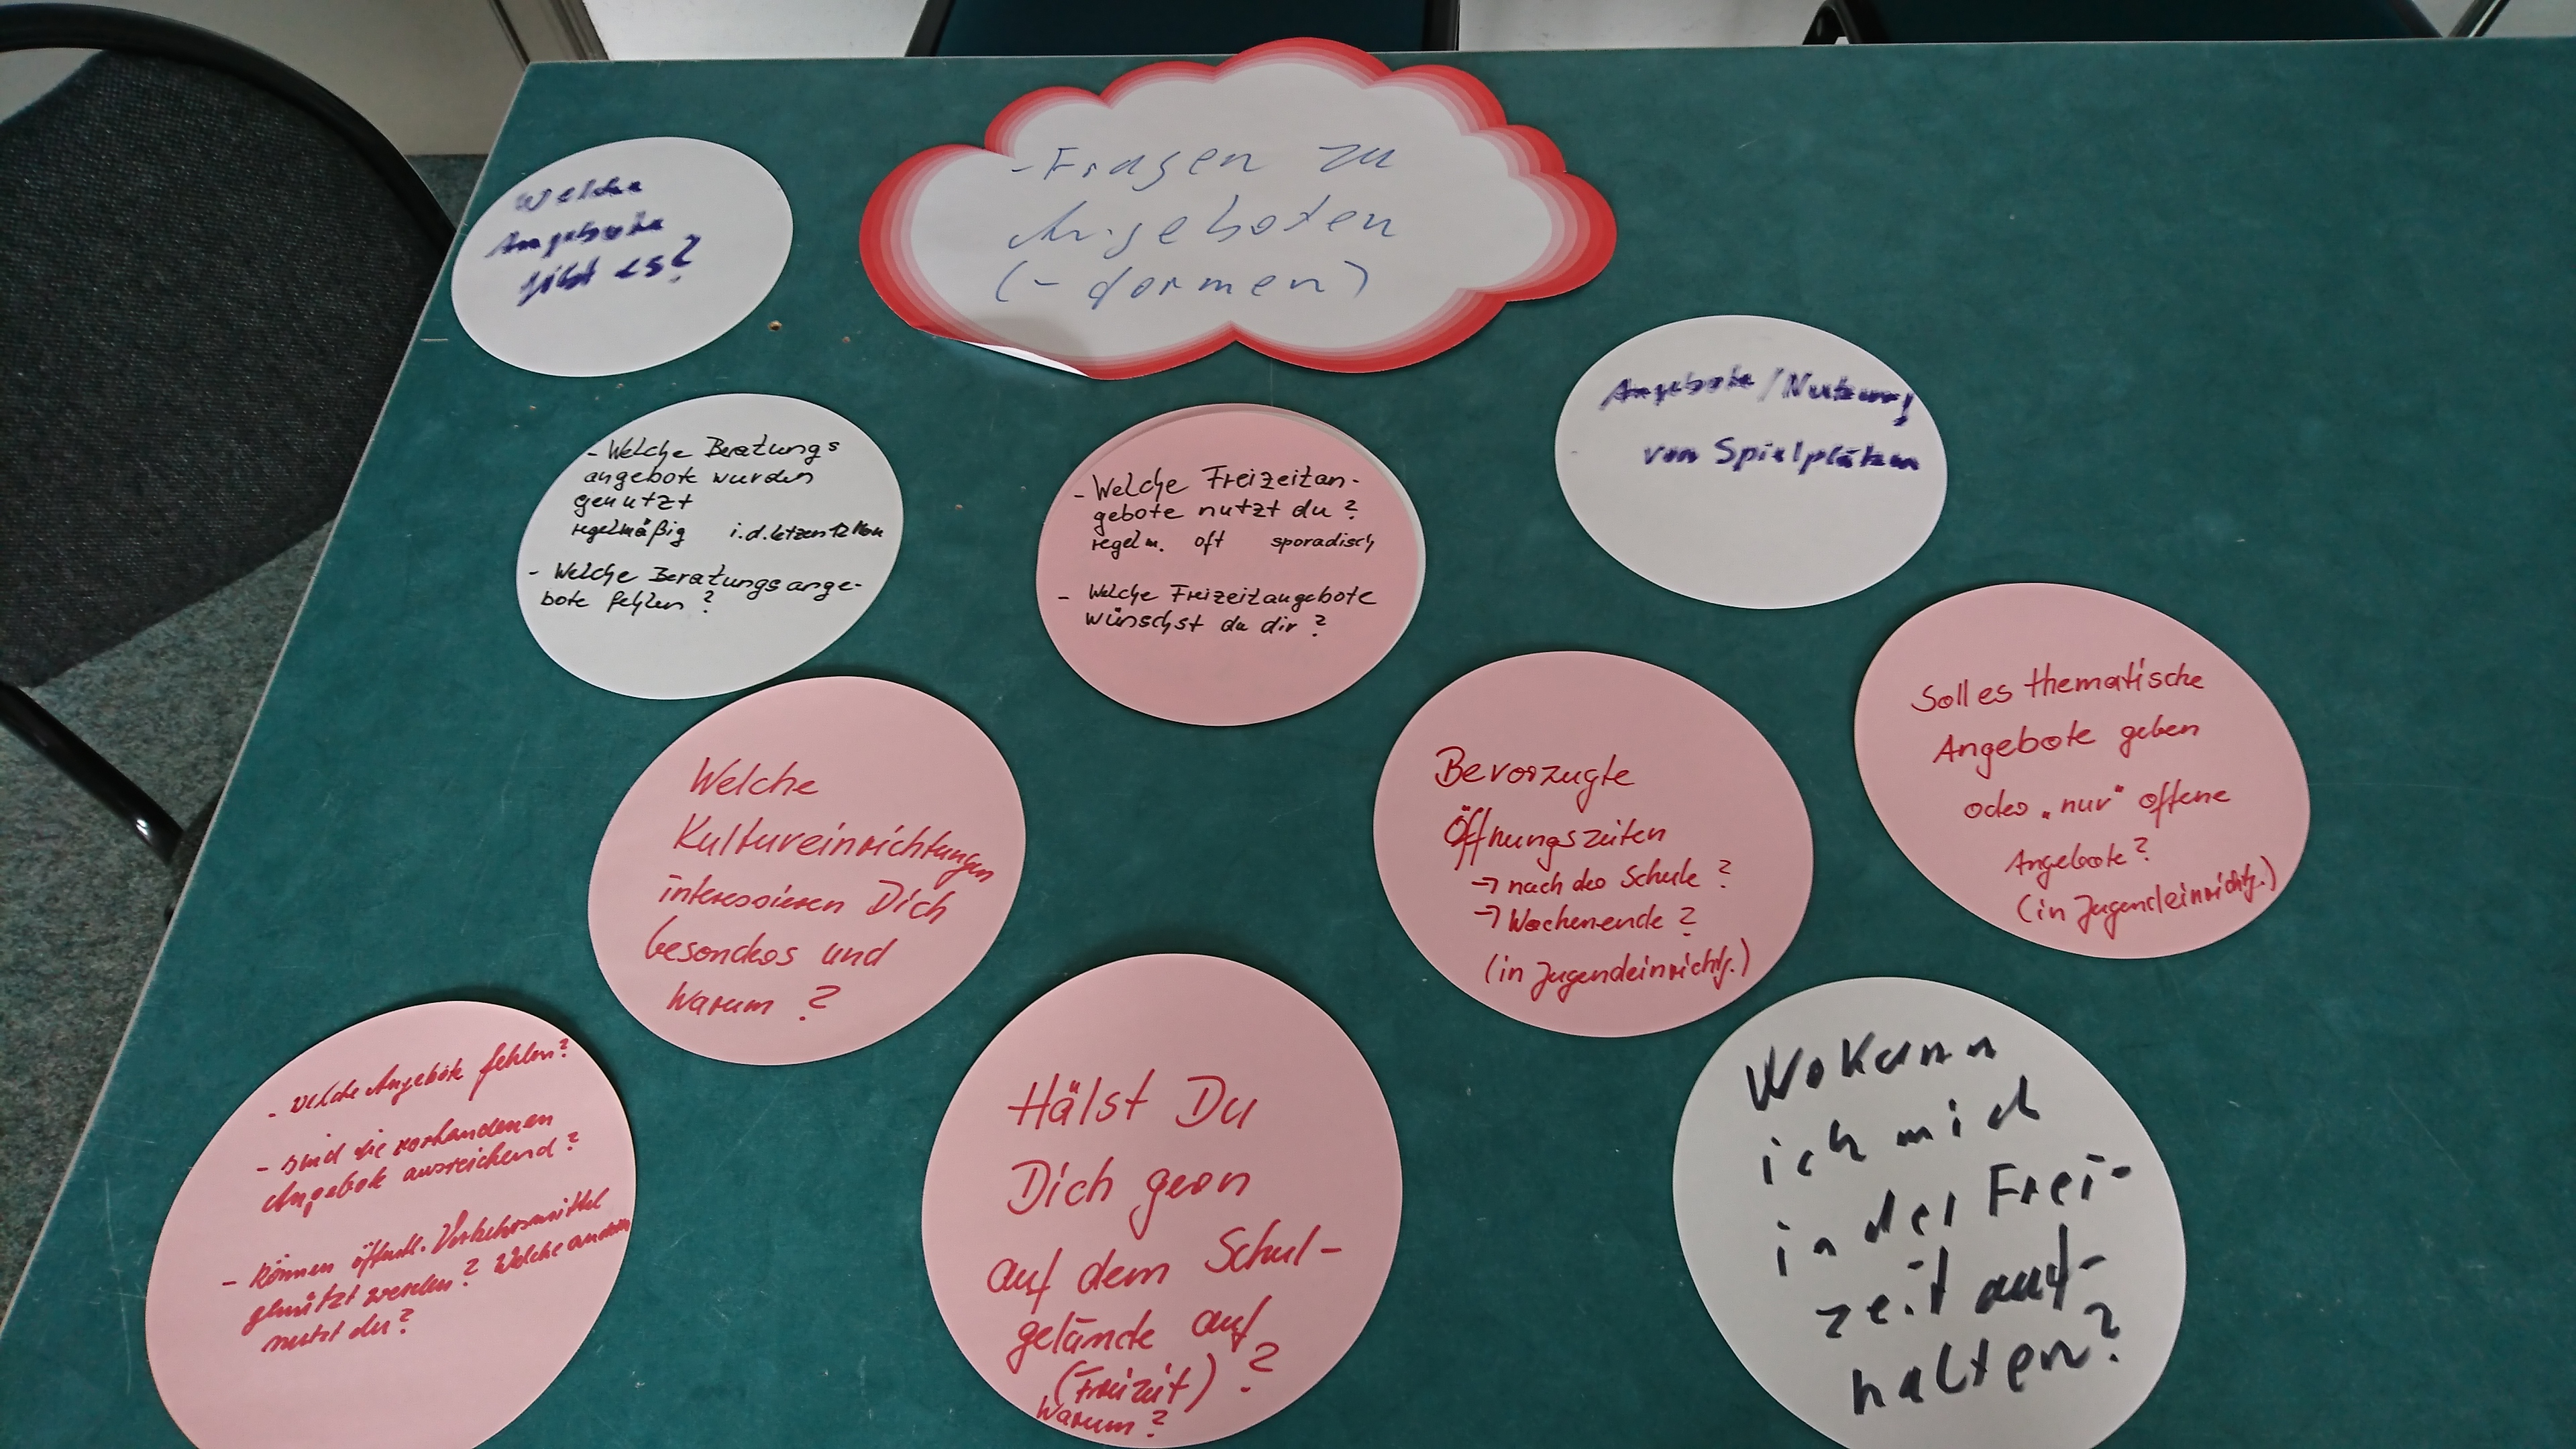 - Fragen zu
Angeboten
(- formen)
Welche
Angebote
gibt es?
- Welche Beratungs
angebote wurden
genutzt
regelmäßig i.d. letzen 12 Mon
- Welche Beratungsange-
bote fehlen?
- Welche Freizeitan-
gebote nutzt du?
regelm. oft sporadisch
- Welche Freizeitangebote
wünschst du dir?
Angebote / Nutzung
von Spielplätzen
Welche
Kultureinrichtungen
interessieren Dich
besonders und
warum?
Bevorzugte
Öffnungszeiten
→ nach der Schule?
→ Wochenende?
(in Jugendeinrichtg.)
Soll es thematische
Angebote geben
oder „nur" offene
Angebote?
(in Jugendeinrichtg.)
- welche Angebote fehlen?
- sind die vorhandenen
Angebote ausreichend?
- können öffentl. Verkehrsmittel
genützt werden? Welche anderen
nutzt du?
Hälst Du
Dich gern
auf dem Schul-
gelände auf
(Freizeit)?
Warum?
Wo kann
ich mich
in der Frei-
zeit auf-
halten?